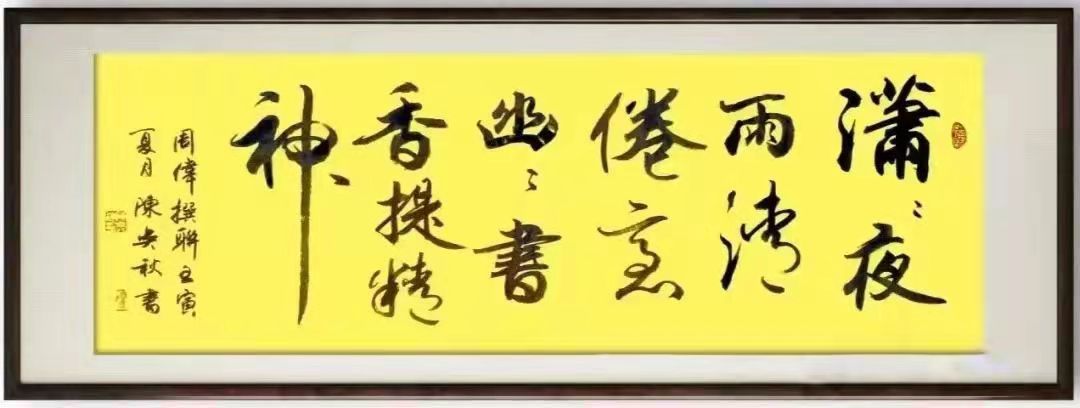 瀟〻夜
雨清
倦意
幽〻書
香提精
神
周偉撰聯壬寅
夏月陳央秋書